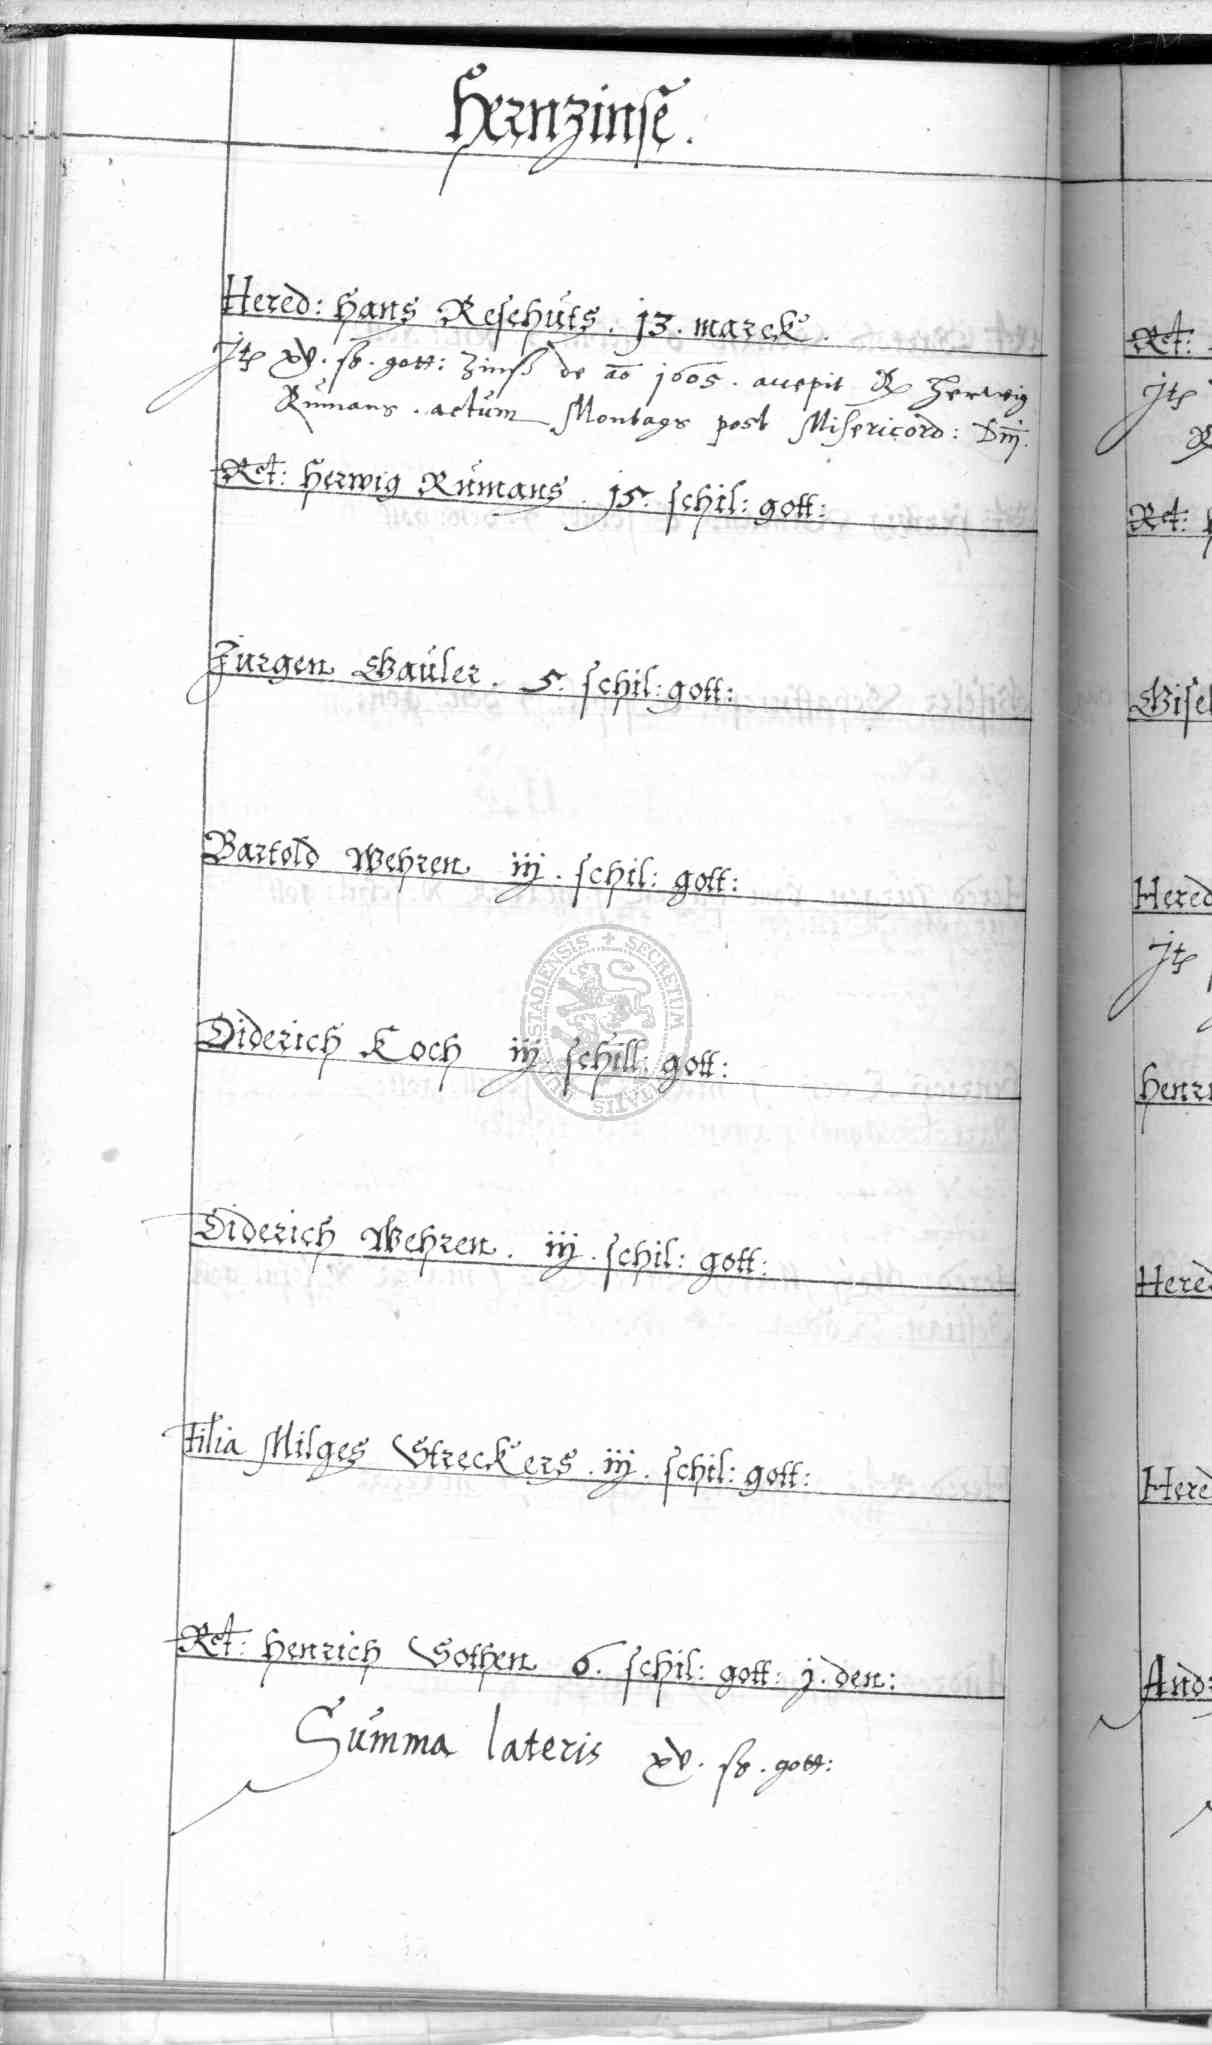 Hernzinse.
Hered: Hans Reschuts. 13. marck.
Jt xv. sβ. gott: Zinß de ao 1605. accepit R Herwig
Rumans. actum Montags post Misericord: Dni.
Ret: Herwig Rumans. 15. schil: gott:
Jurgen Gauler. 5. schil: gott:
Bartold Wehren iij. schil: gott:
Diderich Koch iij. schill: gott:
Diderich Wehren. iij. schil: gott:
Filia Milges Streckers. iij. schil: gott:
Ret: Henrich Gothen 6. schil: gott: j. den:
Summa lateris xv. sβ. gott:
Ret:
Jt
R
Ret:
Gisel
Hered
Jt
Henr
Hered
Hered
Andr
SECRETUM